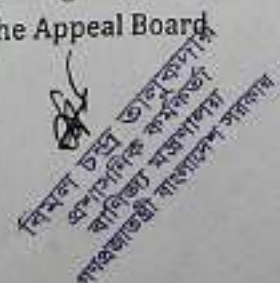 he Appeal Board
বিমল চন্দ্র তালুকদার
প্রশাসনিক কর্মকর্তা
বাণিজ্য মন্ত্রণালয়
গণপ্রজাতন্ত্রী বাংলাদেশ সরকার